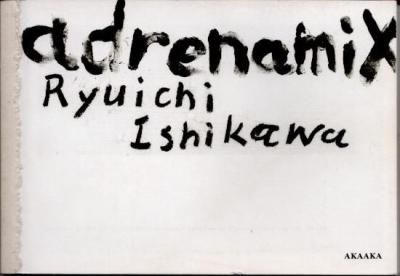 adrenamix
Ryuichi
Ishikawa
AKAAKA